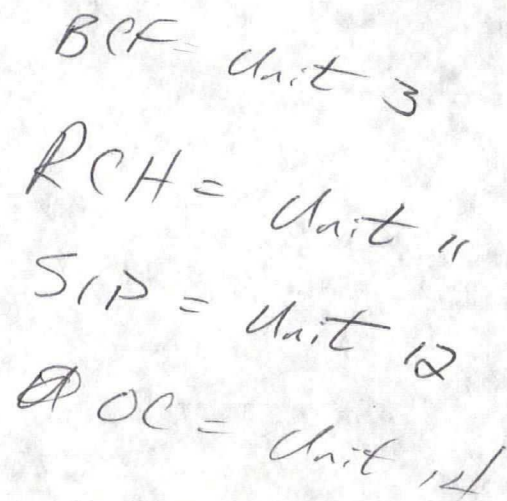 BCF = Unit 3
RCH = Unit 11
SIP = Unit 12
OC = Unit 14